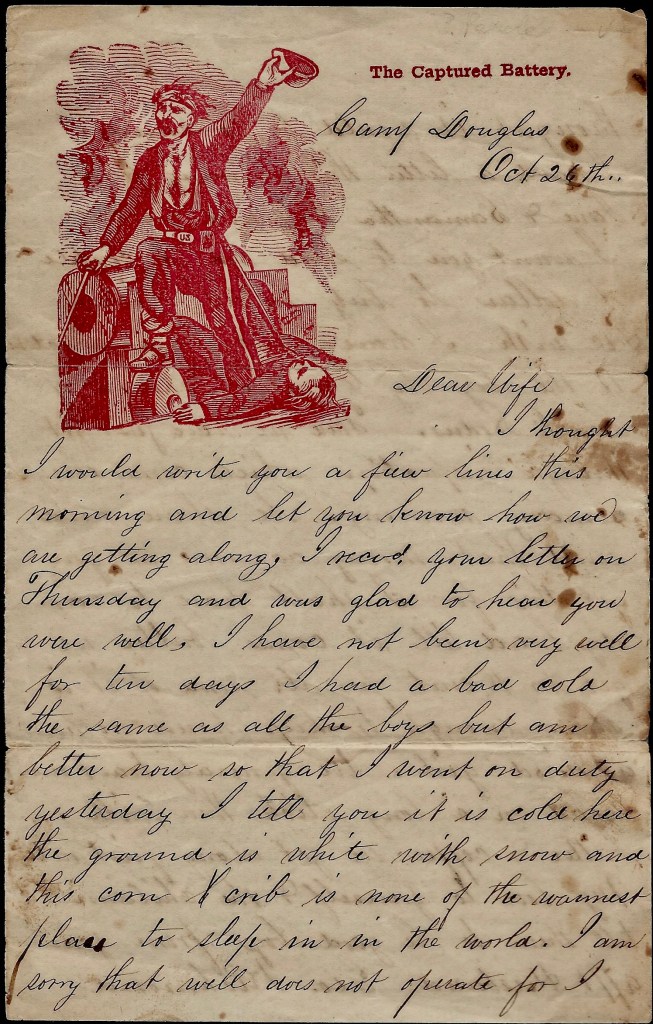 The Captured Battery.
Camp Douglas
Oct 26th..
US
Dear Wife
I thought
I would write you a fiew lines this
morning and let you know how we
are getting along, I recvd. your letter on
Thursday and was glad to hear you
were well, I have not been very well
for ten days I had a bad cold
the same as all the boys but am
better now so that I went on duty
yesterday I tell you it is cold here
the ground is white with snow and
this corn crib is none of the warmest
place to sleep in in the world. I am
sorry that well does not operate for I